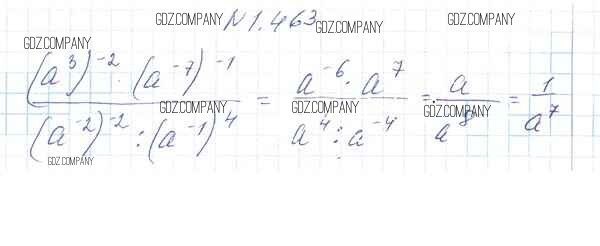 GDZ.COMPANY №1.463 GDZ.COMPANY GDZ.COMPANY
GDZ.COMPANY
(a³)⁻² · (a⁻⁷)⁻¹ / (a⁻²)⁻² : (a⁻¹)⁴ = a⁻⁶ · a⁷ / a⁴ : a⁻⁴ = a / a⁸ = 1 / a⁷
GDZ.COMPANY GDZ.COMPANY GDZ.COMPANY
GDZ.COMPANY